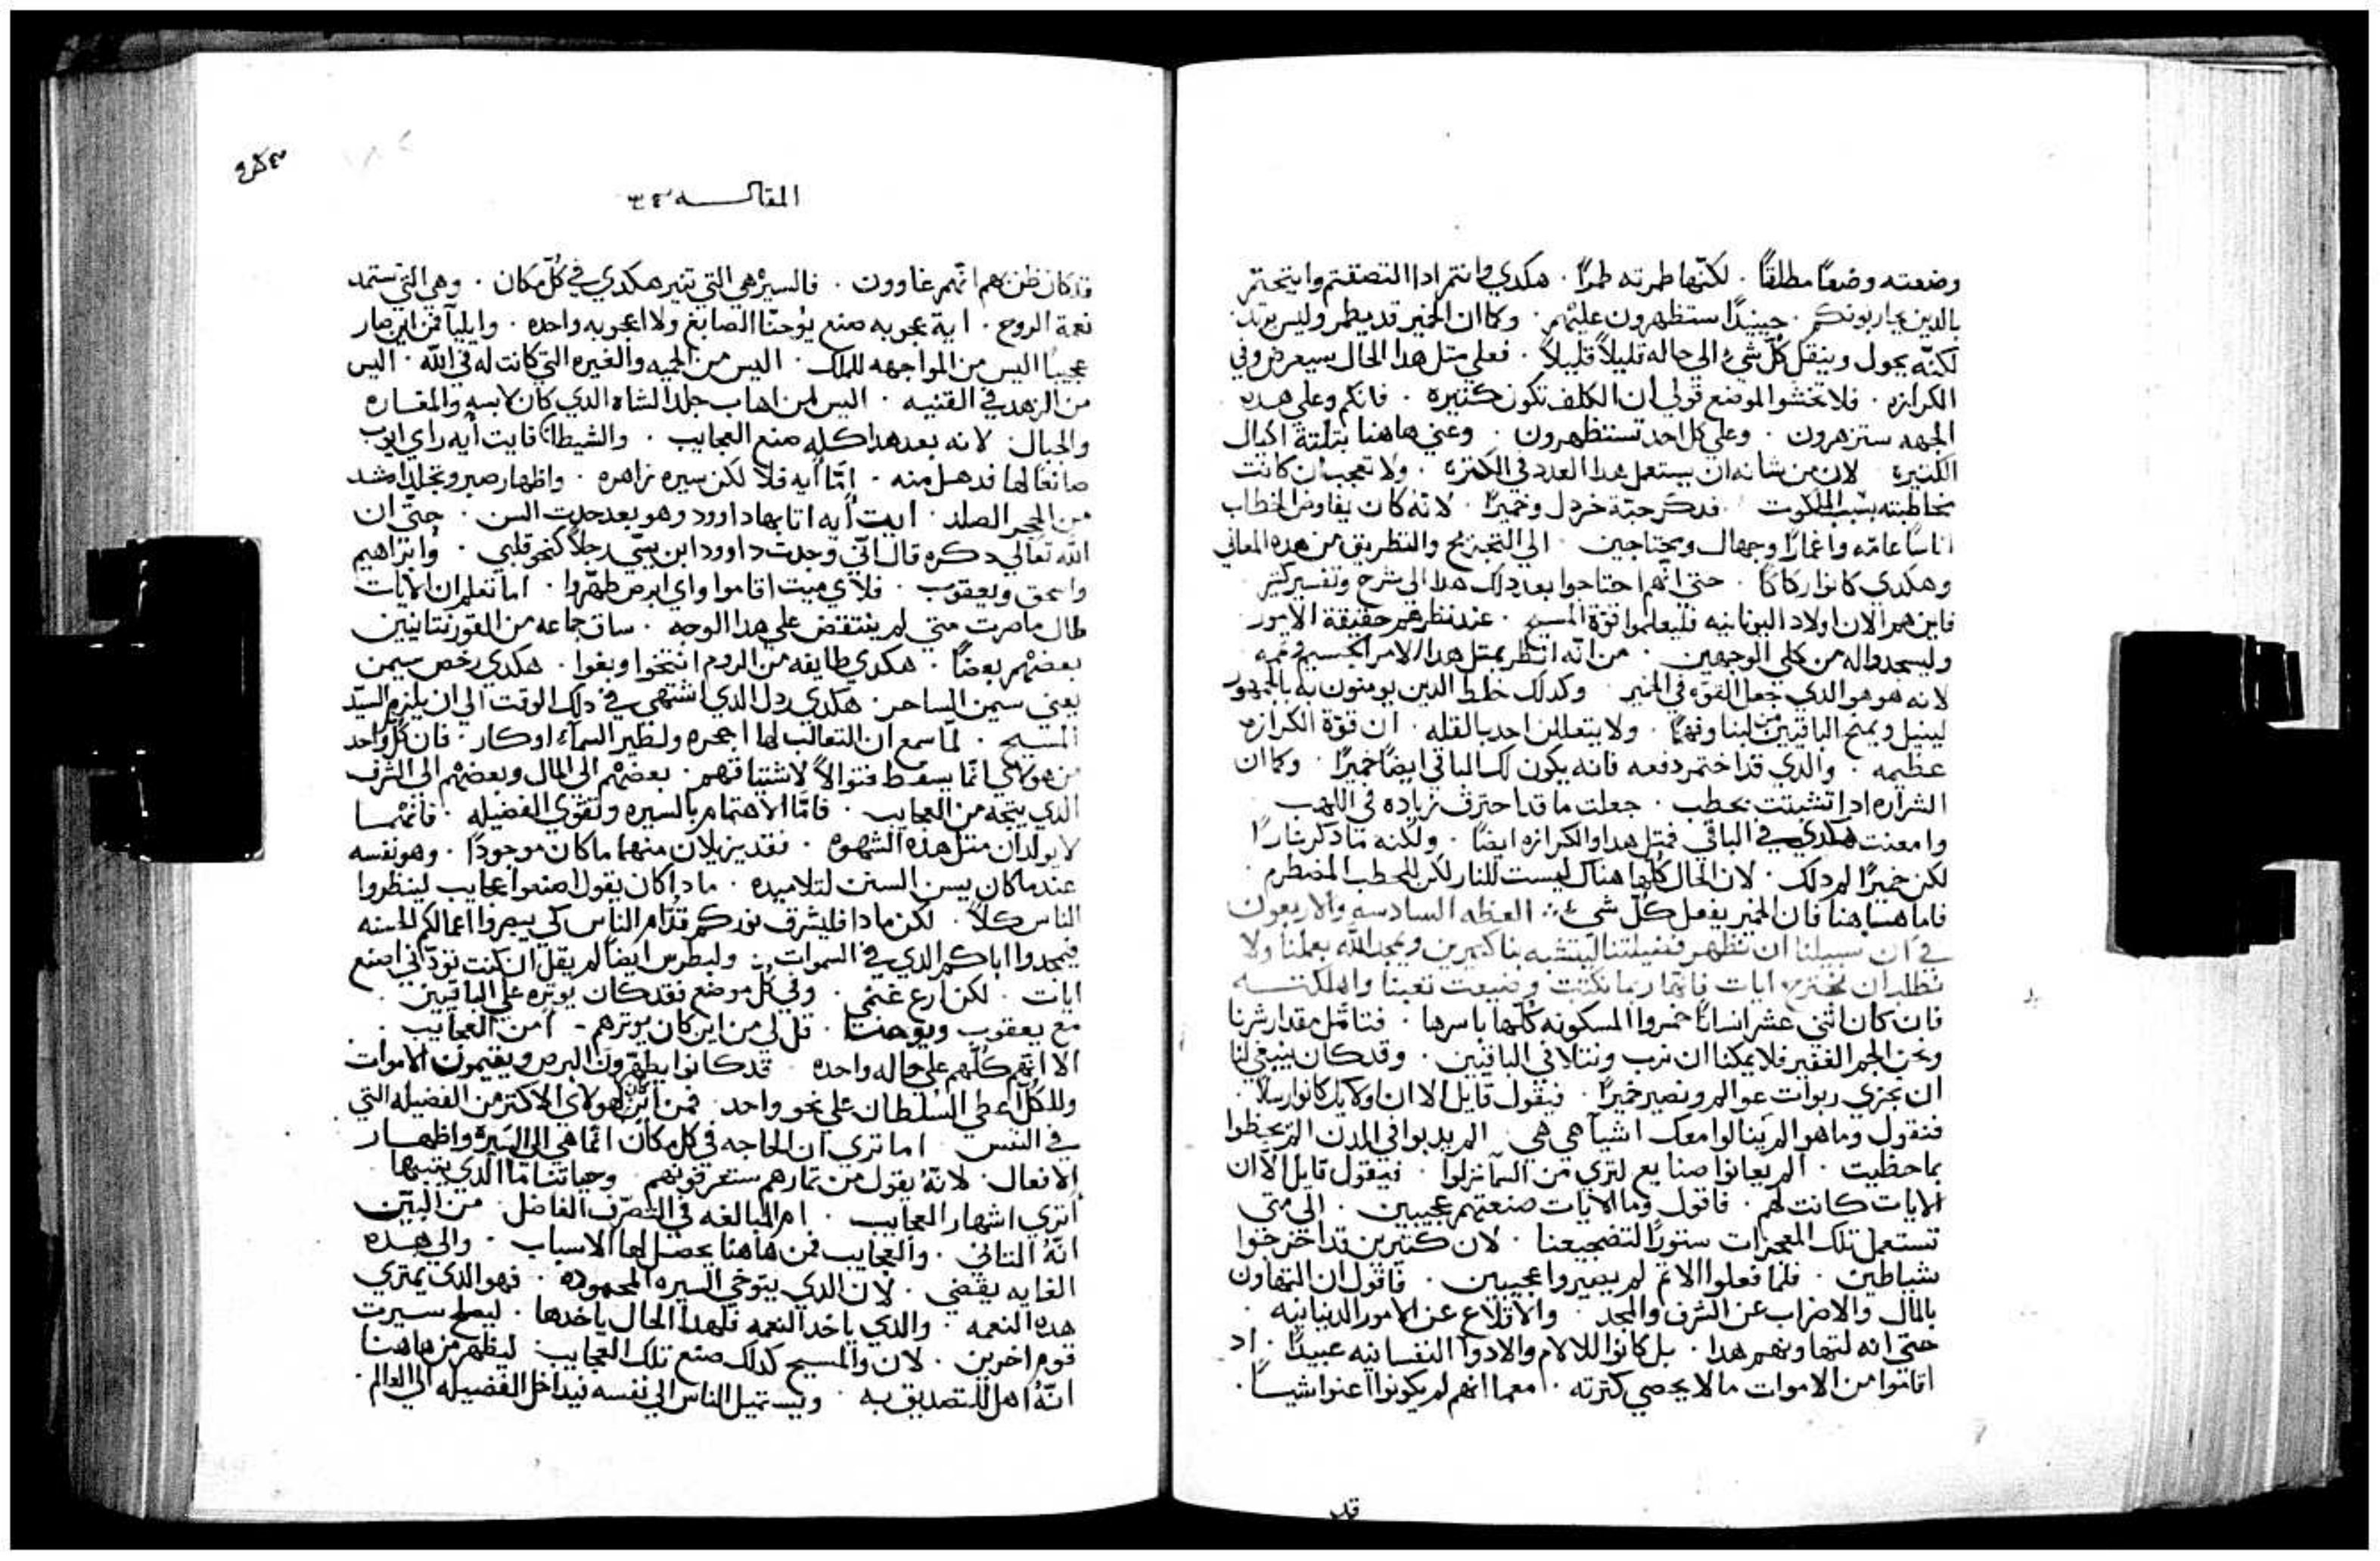 وضعته وضعًا مطلقًا . لكنّها طمرته طمرًا . هكدي وانتم ادا التصقتم وابتحتم
بالدين يحاربونكم . حينيدًا ستظهرون عليهم . وكما ان الخمير قد يطمر وليس يرتد
لكنّه يحول وينقل كُلّ شي الي حاله قليلاً قليلاً . فعلي متل هدا الحال سيعرض وفي
الكرازه . فلا تخشوا لموضع قولي ان الكلف تكون كتيره . فانكم وعلي هده
الجهه ستزهرون . وعلي كل احد تستظهرون . وعني هاهنا بتلتة اكيال
الكتيره لان من شانه ان يستعمل هدا العدد في الكتره . ولا تعجب ان كانت
مخاطبته بسبب الملكوت فدكر حبّة خردل وخميرًا . لانه كان يفاوض الخطاب
اناسًا عامّه واغمارًا وجهال ومحتاجين . الي التخريج والتطريق من هده المعاني
وهكدي كانوا ركاكًا . حتي انهم احتاجوا بعد دلك هدا الي شرح وتفسير كتير
فاين هم الان اولاد اليونانيه فليعلموا قوّة المسيح . عند نظرهم حقيقة الامور
وليسجدوا له من كلي الوجهين . من انّه اندر بمتل هدا الامر الجسيم وتممه
لانه هو هو الدي جعل القوّه في الخمير . وكدلك خلط الدين يومنون به بالجمهور
لينيل ويمنح الباقين من لبنا وفهمًا . ولا يتعللن احد بالقله . ان قوّة الكرازه
عظيمه . والدي قد اختمر دفعه فانه يكون لك الباقي ايضًا خميرًا . وكما ان
الشراره ادا تشبتت بحطب . جعلت ما قد احترق زياده في اللهب
وامعنت هكدي في الباقي فمتل هدا والكرازه ايضًا . ولكنه ما دكر نارًا
لكن خميرًا لم دلك . لان الحال كُلّها هناك ليست للنار لكن للحطب المضطرم .
فاما هاهنا فان الخمير يفعل كُلّ شي ؞ العظه السادسه والاربعون
في ان سبيلنا ان نظهر فضيلتنا ليتشبه بنا كتيرين ويمجد الله بعملنا ولا
نطلب ان نخترع ايات فانها ربما نكتت وضيعت تعبنا واهلكتـــه
فان كان اتني عشر انسانًا خمروا المسكونه كُلّها باسرها . فتامّل مقدار شرنا
ونحن الجم الغفير فلا يمكنا ان نرب ونتلافي الباقين . وقد كان ينبغي لنا
ان نجزي ربوات عوالم ونصير خميرًا . فيقول قايل الا ان اوليك كانوا رسلاً .
فنقول وما هو الم ينالوا معك اشيا هي هي . الم يربوا في المدن الم يحظوا
بما حظيت . الم يعانوا صنايع لتري من السما نزلوا . فيقول قايل الا ان
الايات كانت لهم . فاقول وما الايات صنعتهم عجيبين . الي متي
تستعمل تلك المعجزات ستورًا لتضجيعنا . لان كتيرين قد اخرجوا
شياطين . فلما فعلوا الاتم لم يصيروا عجيبين . فاقول ان التهاون
بالمال والاضراب عن الشرف والمجد . والاقلاع عن الامور الدنيانيه .
حتي انه لتهاونهم هدا . بل كانوا للالام والادوا النفسانيه عبيدًا . اد
اقاموا من الاموات ما لا يحصي كترته . معما انهم لم يكونوا اعنوا شيـــًا .
قد
المقالـــــه ٤٣
قد كان ظن بهم انّهم غاوون . فالسيره هي التي تنير هكدي في كُلّ مكان . وهي التي تستمد
نعمة الروح . اية عجوبه صنع يوحنّا الصابغ ولا اعجوبه واحده . وايليا فمن اين صار
عجيبًا اليس من المواجهه للملك . اليس من الحميه والغيره التي كانت له في الله . اليس
من الزهد في القنيه . اليس من اهاب جلد الشاه الدي كان لابسه والمغـــاره
والجبال لانه بعد هدا كله صنع العجايب . والشيطان فايت أيه راي ايوب
صانعًا لها فدهــل منه . امّا أيه فلا لكن سيره زاهره . واظهار صبر وتجلدًا اشد
من الحجر الصلد . ايت أيه اتا بها داوود وهو بعد حدت السن . حتّي ان
الله تعالي دكره قال انّي وجدت داوود ابن يسّي رجلاً كنحو قلبي . وابراهيم
واسحق ويعقوب . فلاي ميت اقاموا واي ابرص طهّروا . اما تعلم ان الايات
طال ما ضرت متي لم ينتقض علي هدا الوجه . ساق جماعه من القورنتانيين
بعضهم بعضًا . هكدي طايفه من الروم انتخوا وبغوا . هكدي رخص سيمن
يعني سيمن الساحر . هكدي ردل الدي اشتهي في دلك الوقت الي ان يلزم السيّد
المسيح . لمّا سمع ان التعالب لها اجحره ولطير السمآء اوكار . فان كُل واحد
من هولاي انمّا يسقط فتوالاً لاشتياقهم . بعضهم الي المال وبعضهم الي الشرف
الدي يتجه من العجايب . فامّا الاهتمام بالسيره وتقوي الفضيله . فانّهمـا
لا يولدان متل هده الشهوه . فقد يزيلان منهما ما كان موجودًا . وهو نفسه
عندما كان يسن السنن لتلاميده . مادا كان يقول اصنعوا عجايب لينظروا
الناس كلاّ . لكن مادا فليشرق نوركم قُدّام الناس كي يبصروا اعمالكم الحسنه
فيمجدوا اباكم الدي في السموات ؞ ولبطرس ايضًا لم يقل ان كنت تودّاني اصنع
ايات . لكن ارع غنمي . وفي كُل موضع فقد كان يوتره علي الباقين .
مع يعقوب ويوحنا . قل لي من اين كان يوترهم . امن العجايب .
الا انهم كُلّهم علي حاله واحده قد كانوا يطهّرون البرص ويقيمون الاموات
وللكُلّ اعطي السلطان علي نحو واحد . فمن اين لهولاي الاكتر من الفضيله التي
في النفس . اما تري ان الحاجه في كل مكان انّما هي الي السيره واظهــار
الافعال . لانّه يقول من تمارهم ستعرفونهم . وحياتنا ما الدي يتبها
اتري اشهار العجايب . ام المبالغه في التصرّف الفاضل . من البيّن
انّه التاني . والعجايب فمن هاهنا يحصل لها الاسباب . والي هـــده
الغايه يقضي . لان الدي يتوخي السيره المحموده . فهو الدي يمتري
هده النعمه . والدي ياخد النعمه فلهدا الحال ياخدها . ليصلح سيرت
قوم اخرين . لان والمسيح كدلك صنع تلك العجايب . ليظهر من هاهنا
انّه اهل للتصديق به . ويستميل الناس الي نفسه فيداخل الفضيله الي العالم .